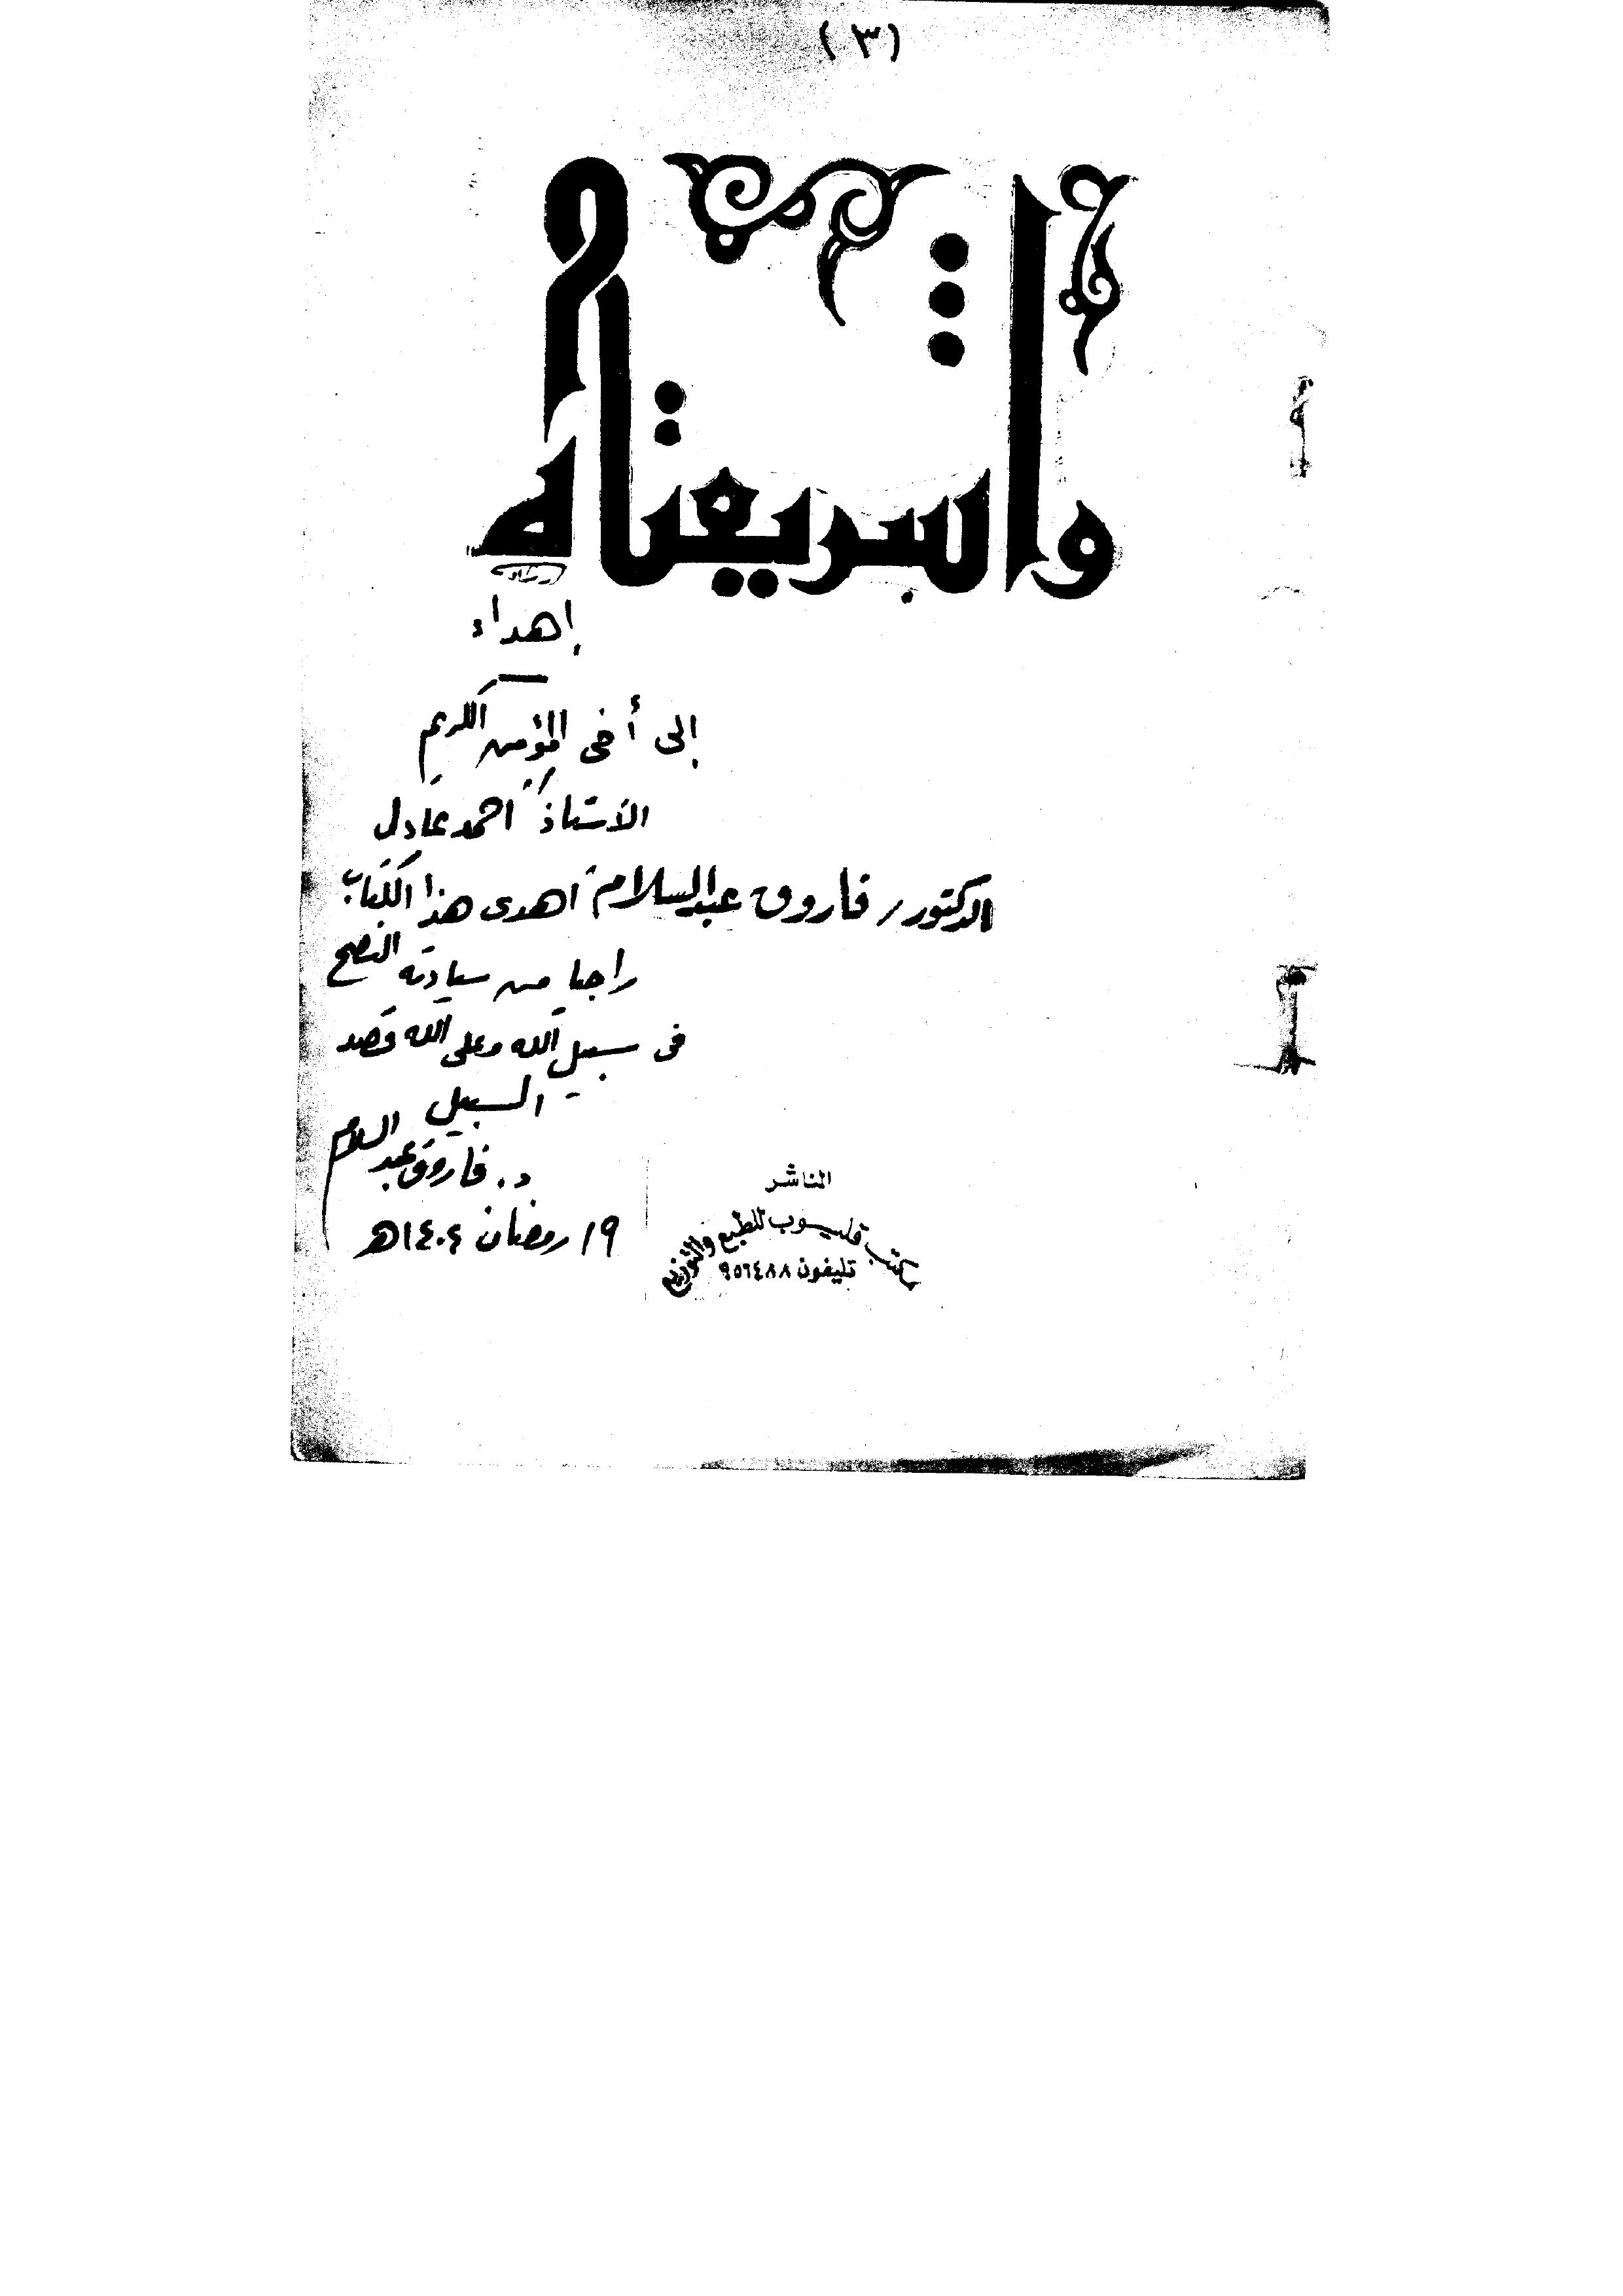 (٣)
واشريعتاه
إهداء
إلى أخى المؤمن الكريم
الأستاذ أحمد عادل
الدكتور/ فاروق عبد السلام
أهدى هذا الكتاب
راجيا من سيادته النصح
فى سبيل الله وعلى الله قصد
السبيل
د. فاروق عبد السلام
١٩ رمضان ١٤٠٤هـ
الناشر
مكتب قليوب للطبع والتوزيع
تليفون ٩٥٦٤٨٨